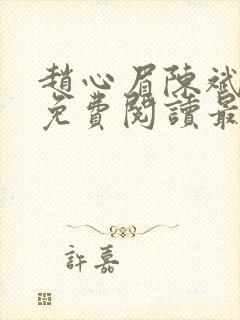 趙心眉陳斌
免費閱讀最
許嘉